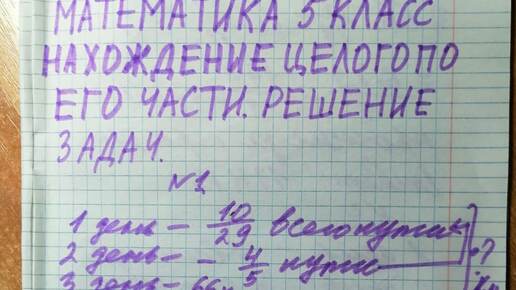 МАТЕМАТИКА 5 КЛАСС
НАХОЖДЕНИЕ ЦЕЛОГО ПО
ЕГО ЧАСТИ. РЕШЕНИЕ
ЗАДАЧ.
№1
1 день – 10/29 всего пути
2 день – – 4/5 пути ?
3 день – 66